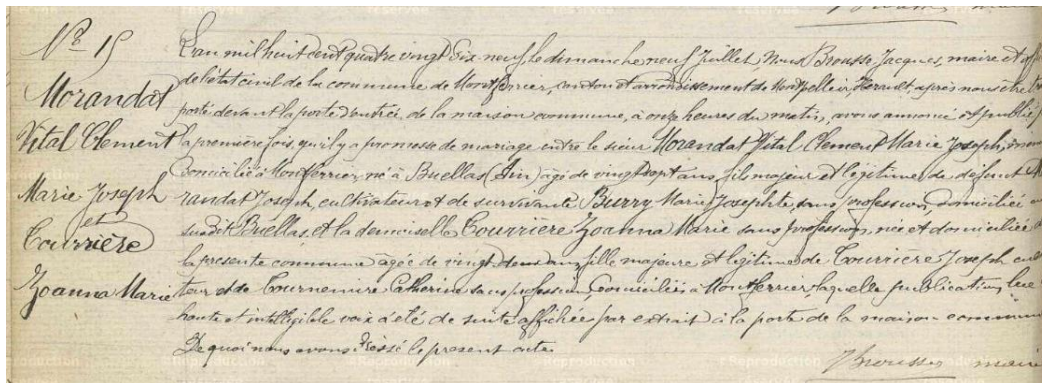 N° 15
Morandat
Vital Clement
Marie Joseph
et
Courrière
Joanna Marie
L'an mil huit cent quatre vingt dix neuf, le dimanche neuf Juillet, Nous Brousse Jacques, maire et
de l'état civil de la commune de Montferrier, canton et arrondissement de Montpellier, Hérault, après nous être
porté devant la porte d'entrée de la maison commune, à onze heures du matin, avons annoncé et publié
la première fois, qu'il y a promesse de mariage entre le sieur Morandat Vital Clement Marie Joseph,
domicilié à Montferrier, né à Buellas (Ain) agé de vingt sept ans, fils majeur et légitime de défunt
randat Joseph, cultivateur et de survivante Burry Marie Josephte, sans profession, domiciliée
susdit Buellas, et la demoiselle Courrière Joanna Marie sans profession, née et domiciliée
la présente commune agée de vingt deux ans fille majeure et légitime de Courrière Joseph
teur et de Tournemire Catherine sans profession, domiciliés à Montferrier, laquelle publication, lue
haute et intelligible voix a été de suite affichée par extrait à la porte de la maison commune
De quoi nous avons dressé le présent acte.
JBrousse maire